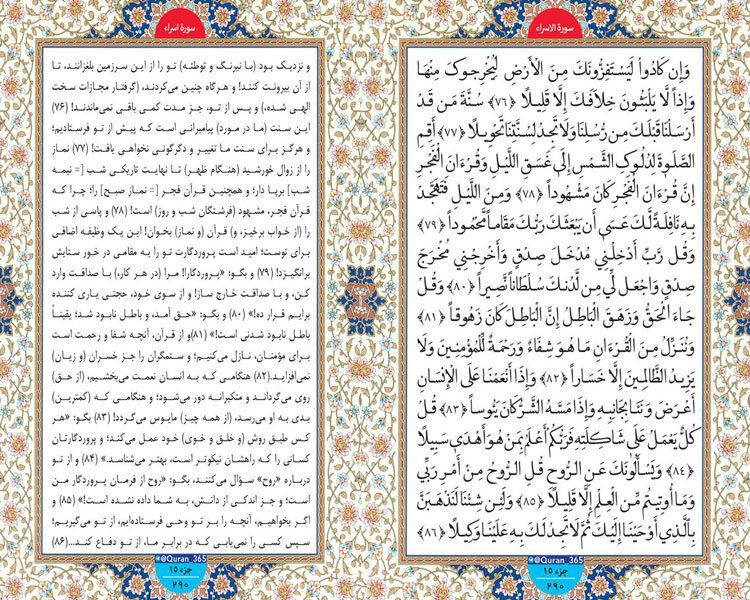 سورة الاسراء
وَإِن كَادُواْ لَيَسْتَفِزُّونَكَ مِنَ الْأَرْضِ لِيُخْرِجوكَ مِنْهَا
وَإِذاً لَّا يَلْبَثُونَ خِلَافَكَ إِلَّا قَلِيلًا ﴿۷۶﴾ سُنَّةَ مَن قَدْ
أَرْسَلْنَا قَبْلَكَ مِن رُّسُلِنَا وَلَا تَجِدُ لِسُنَّتِنَا تَحْوِيلًا ﴿۷۷﴾ أَقِمِ
الصَّلَوةَ لِدُلُوكِ الشَّمْسِ إِلَى غَسَقِ اللَّيْلِ وَقُرْءَانَ الْفَجْرِ
إِنَّ قُرْءَانَ الْفَجْرِ كَانَ مَشْهُوداً ﴿۷۸﴾ وَمِنَ اللَّيْلِ فَتَهَجَّدْ
بِهِ نَافِلَةً لَّكَ عَسَى أَن يَبْعَثَكَ رَبُّكَ مَقَاماً مَّحْمُوداً ﴿۷۹﴾
وَقُل رَّبِّ أَدْخِلْنِي مُدْخَلَ صِدْقٍ وَأَخْرِجْنِي مُخْرَجَ
صِدْقٍ وَاجْعَل لِّي مِن لَّدُنكَ سُلْطَاناً نَّصِيراً ﴿۸۰﴾ وَقُلْ
جَاءَ الْحَقُّ وَزَهَقَ الْبَاطِلُ إِنَّ الْبَاطِلَ كَانَ زَهُوقاً ﴿۸۱﴾
وَنُنَزِّلُ مِنَ الْقُرْءَانِ مَا هُوَ شِفَاءٌ وَرَحْمَةٌ لِّلْمُؤْمِنِينَ وَلَا
يَزِيدُ الظَّالِمِينَ إِلَّا خَسَاراً ﴿۸۲﴾ وَإِذَا أَنْعَمْنَا عَلَى الْإِنسَانِ
أَعْرَضَ وَنَئَا بِجَانِبِهِ وَإِذَا مَسَّهُ الشَّرُّ كَانَ يَئُوساً ﴿۸۳﴾ قُلْ
كُلٌّ يَعْمَلُ عَلَى شَاكِلَتِهِ فَرَبُّكُمْ أَعْلَمُ بِمَنْ هُوَ أَهْدَى سَبِيلًا
﴿۸۴﴾ وَيَسْأَلُونَكَ عَنِ الرُّوحِ قُلِ الرُّوحُ مِنْ أَمْرِ رَبِّي
وَمَا أُوتِيتُم مِّنَ الْعِلْمِ إِلَّا قَلِيلًا ﴿۸۵﴾ وَلَئِن شِئْنَا لَنَذْهَبَنَّ
بِالَّذِي أَوْحَيْنَا إِلَيْكَ ثُمَّ لَا تَجِدُ لَكَ بِهِ عَلَيْنَا وَكِيلًا ﴿۸۶﴾
@Quran_365
جزء ۱۵
۲۹۰
سورة اسراء
و نزدیک بود (با نیرنگ و توطئه) تو را از این سرزمین بلغزانند، تا
از آن بیرونت کنند! و هرگاه چنین می‌کردند، (گرفتار مجازات سخت
الهی شده،) و پس از تو، جز مدت کمی باقی نمی‌ماندند! (۷۶)
این سنت (ما در مورد) پیامبرانی است که پیش از تو فرستادیم؛
و هرگز برای سنت ما تغییر و دگرگونی نخواهی یافت! (۷۷) نماز
را از زوال خورشید (هنگام ظهر) تا نهایت تاریکی شب [= نیمه
شب] برپا دار؛ و همچنین قرآن فجر [= نماز صبح] را؛ چرا که
قرآن فجر، مشهود (فرشتگان شب و روز) است! (۷۸) و پاسی از شب
را (از خواب برخیز، و) قرآن (و نماز) بخوان! این یک وظیفه اضافی
برای توست؛ امید است پروردگارت تو را به مقامی در خور ستایش
برانگیزد! (۷۹) و بگو: «پروردگارا! مرا (در هر کار،) با صداقت وارد
کن، و با صداقت خارج ساز! و از سوی خود، حجتی یاری کننده
برایم قرار ده!» (۸۰) و بگو: «حق آمد، و باطل نابود شد؛ یقیناً
باطل نابود شدنی است!» (۸۱)و از قرآن، آنچه شفا و رحمت است
برای مؤمنان، نازل می‌کنیم؛ و ستمگران را جز خسران (و زیان)
نمی‌افزاید.(۸۲) هنگامی که به انسان نعمت می‌بخشیم، (از حق)
روی می‌گرداند و متکبرانه دور می‌شود؛ و هنگامی که (کمترین)
بدی به او می‌رسد، (از همه چیز) مایوس می‌گردد! (۸۳) بگو: «هر
کس طبق روش (و خلق و خوی) خود عمل می‌کند؛ و پروردگارتان
کسانی را که راهشان نیکوتر است، بهتر می‌شناسد.» (۸۴) و از تو
درباره «روح» سؤال می‌کنند، بگو: «روح از فرمان پروردگار من
است؛ و جز اندکی از دانش، به شما داده نشده است!» (۸۵) و
اگر بخواهیم، آنچه را بر تو وحی فرستاده‌ایم، از تو می‌گیریم؛
سپس کسی را نمی‌یابی که در برابر ما، از تو دفاع کند...(۸۶)
@Quran_365
جزء ۱۵
۲۹۰